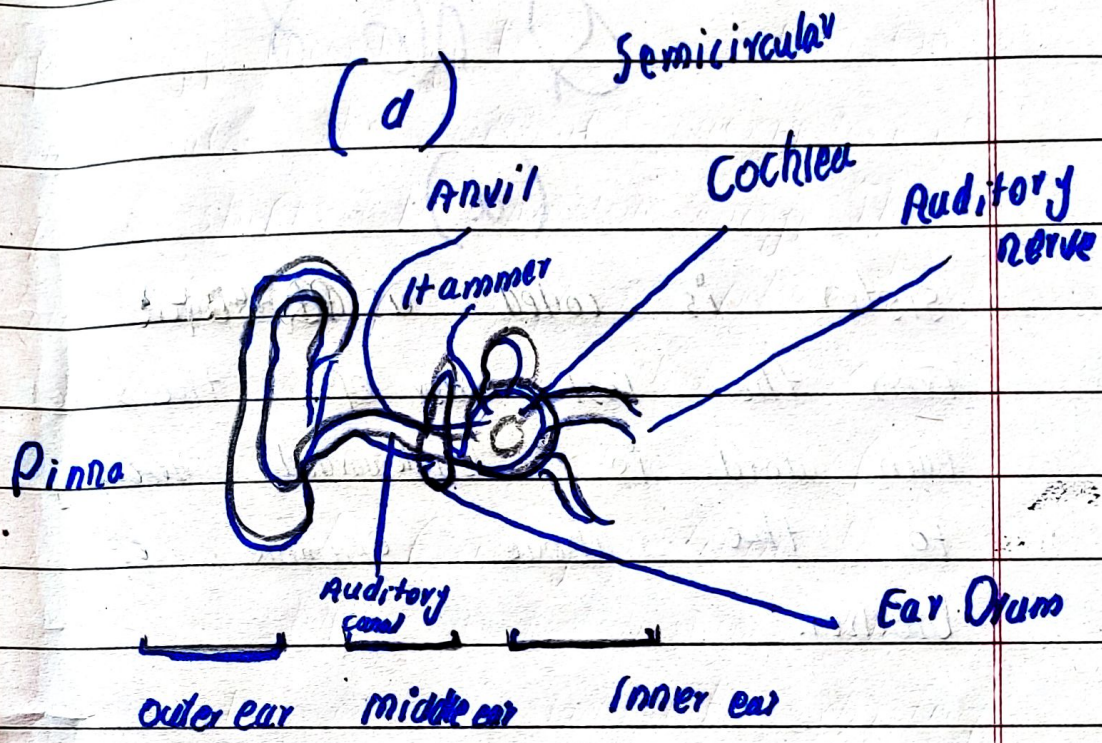 Semicircular
(d)
Anvil
Cochlea
Auditory
nerve
Hammer
Pinna
Auditory
canal
Ear Drum
outer ear
middle ear
Inner ear